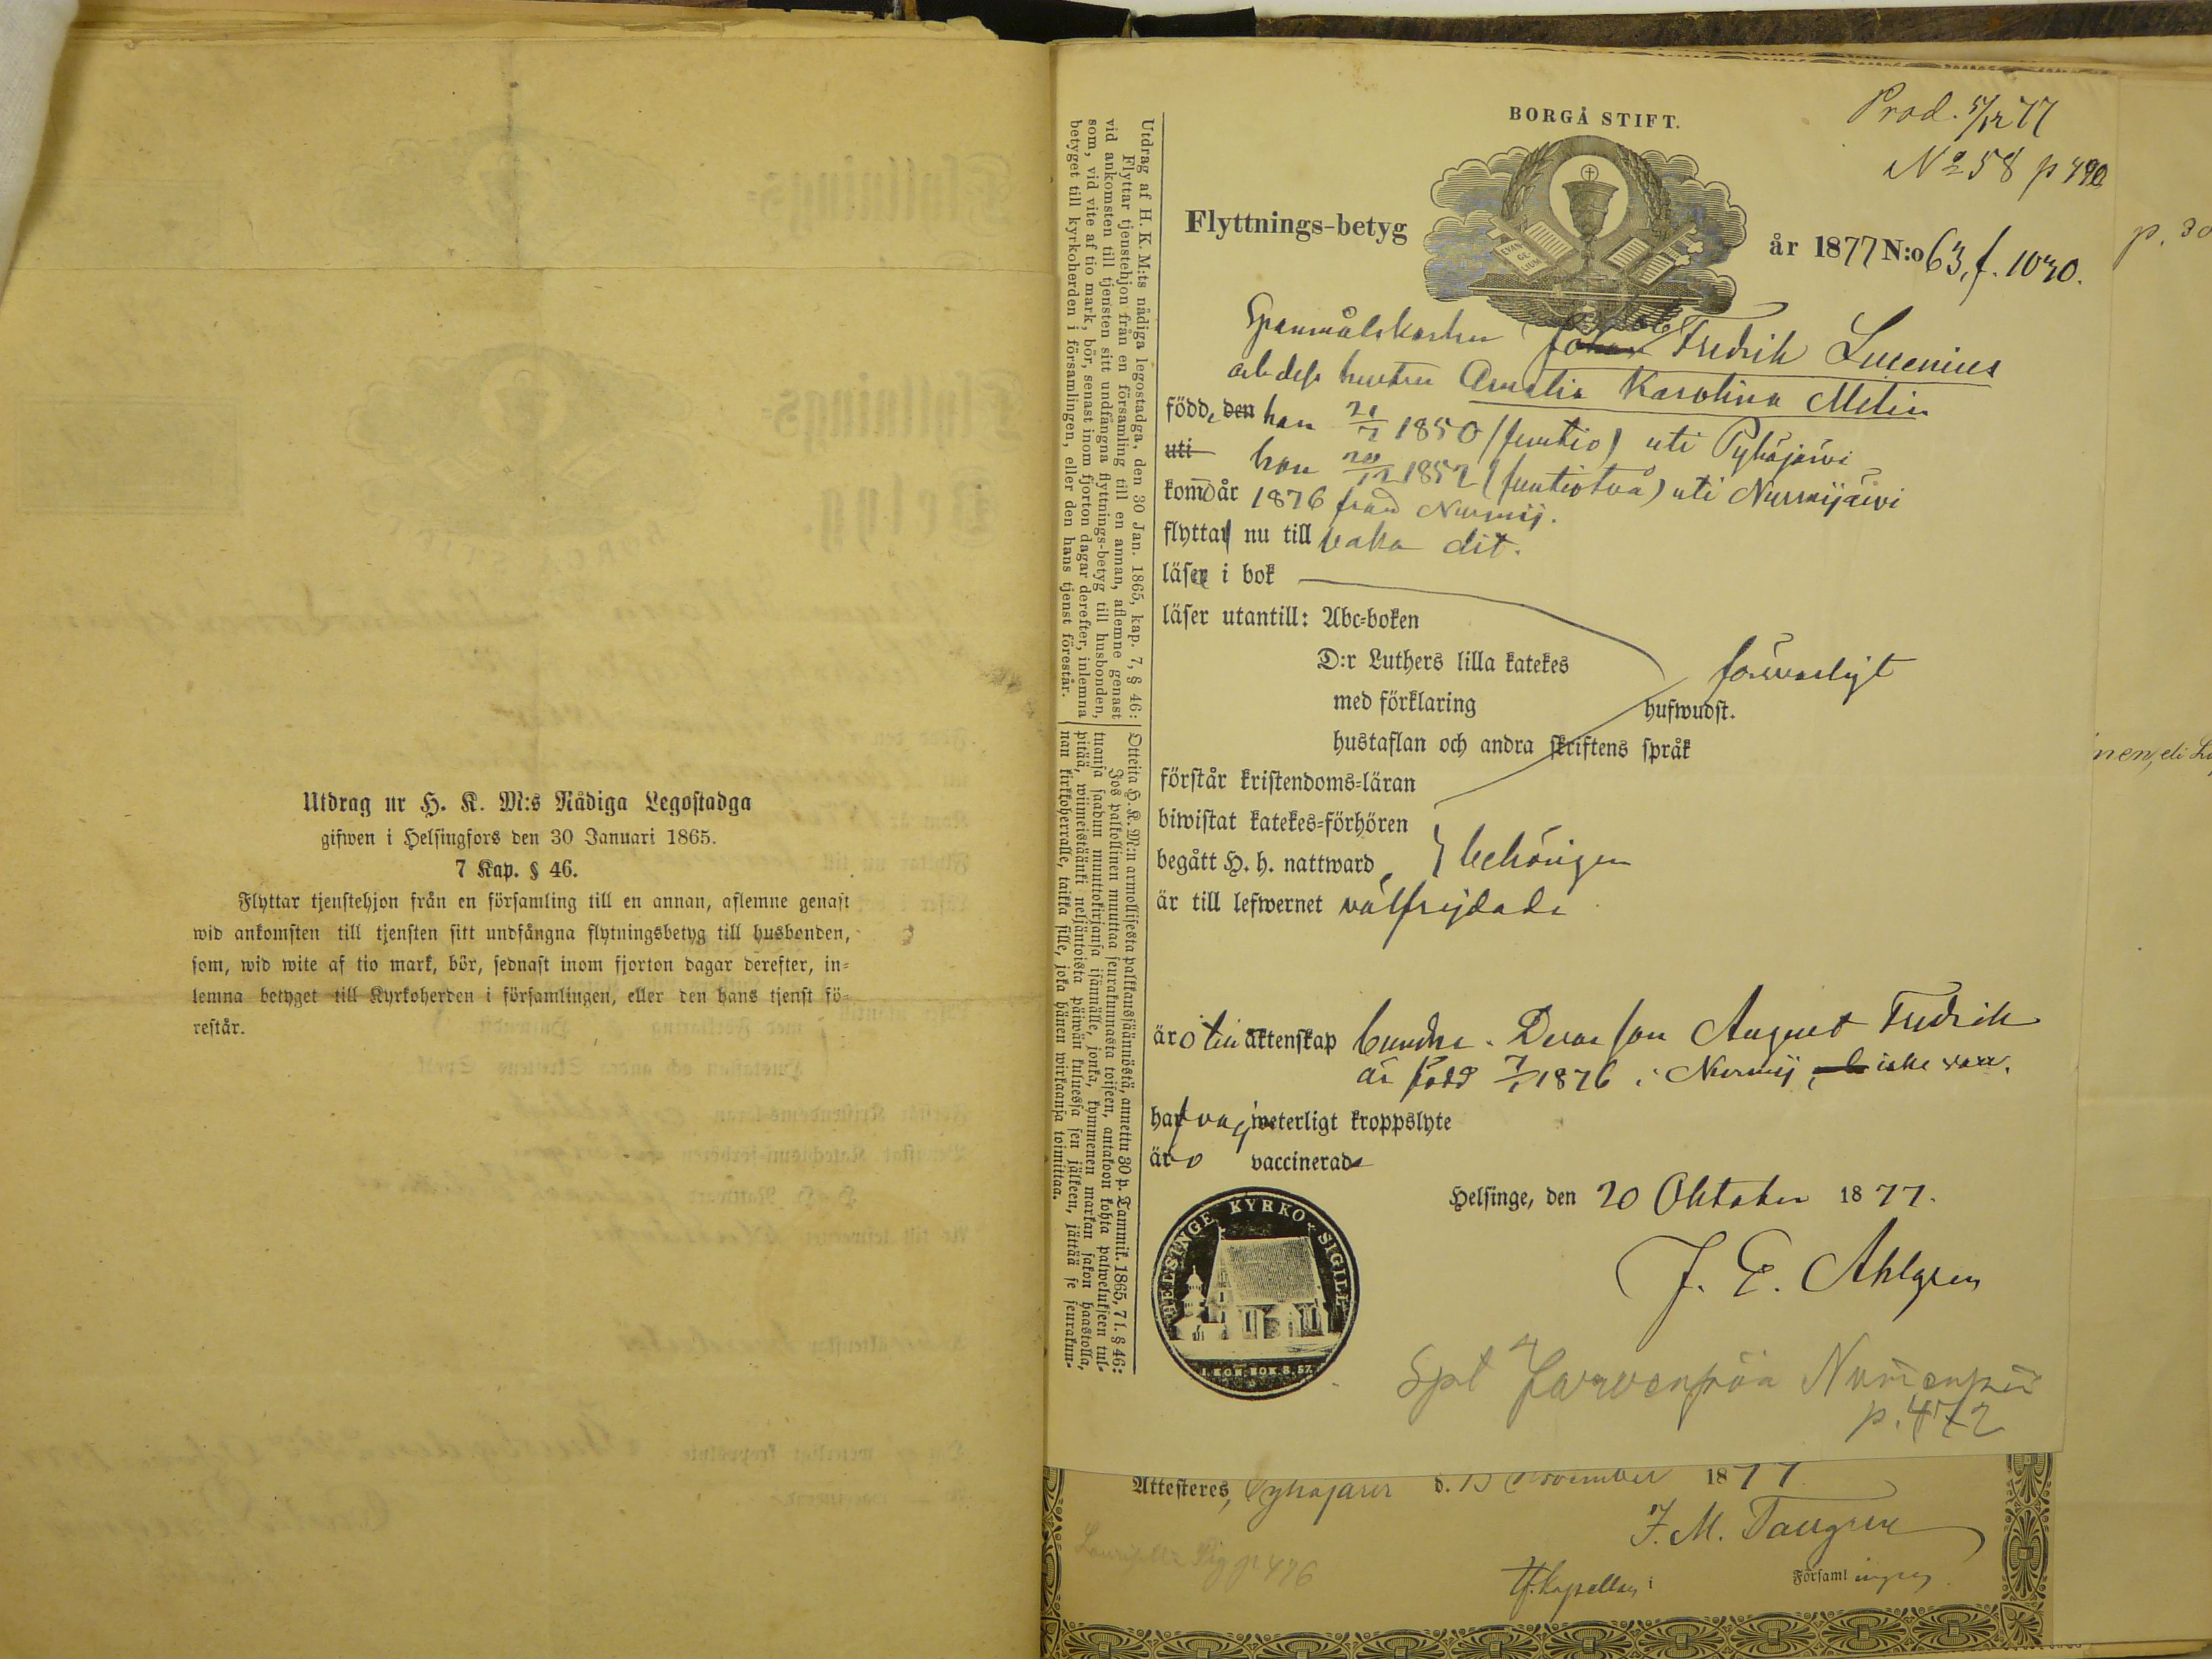 Utdrag ur H. K. M:s Nådiga Legostadga
gifwen i Helsingfors den 30 Januari 1865.
7 Kap. § 46.
Flyttar tjenstehjon från en församling till en annan, aflemne genast
wid ankomsten till tjensten sitt undfångna flytningsbetyg till husbonden,
som, wid wite af tio mark, bör, sednast inom fjorton dagar derefter, in-
lemna betyget till Kyrkoherden i församlingen, eller den hans tjenst fö-
restår.
Utdrag af H. K. M:ts nådiga legostadga, den 30 Jan. 1865, kap. 7, § 46:
Flyttar tjenstehjon från en församling till en annan, aflemne genast
vid ankomsten till tjensten sitt undfångna flyttnings-betyg till husbonden,
som, vid vite af tio mark, bör, senast inom fjorton dagar derefter, inlemna
betyget till kyrkoherden i församlingen, eller den hans tjenst förestår.
Otteita H. K. M:n armollisesta palkkaussäännöstä, annettu 30 p. Tammik. 1865, 7 l. § 46:
Jos palkollinen muuttaa seurakunnasta toiseen, antakoon kohta palwelukseen tul-
tuansa saadun muuttokirjansa isännälle, jonka, kymmenen markan sakon haastolla,
pitää, wiimeistäänki neljäntoista päiwän kuluessa sen jälkeen, jättää se seurakun-
nan kirkkoherralle, taikka sille, joka hänen wirkaansa toimittaa.
BORGÅ STIFT.
Prod. 5/12 77
No 58 p 490
EVAN
GE
LIUM
Flyttnings-betyg
år 1877 N:o 63, f. 1040.
Spanmålskarlen Johan Fredrik Lucenius
och dess hustru Amalia Karolina Melin
född, den han 20/7 1850 (femtio) uti Pyhäjärvi
uti hon 20/12 1852 (femtiotvå) uti Nurmijärvi
kommo år 1876 från Nurmij.
flyttar nu till baka dit.
läser i bok
läser utantill: Abc-boken
D:r Luthers lilla katekes
försvarligt
med förklaring
hufwudst.
hustaflan och andra skriftens språk
förstår kristendoms-läran
biwistat katekes-förhören
begått H. h. nattward behörigen
är till lefwernet välfrejdade
äro till äktenskap bundna. Deras son August Fredrik
är född 7/1 1876 i Nurmij, icke vacc.
haf vag weterligt kroppslyte
äro vaccinerade
Helsinge, den 20 Oktober 1877.
HELSINGE KYRKO SIGILL
1. KON. BOK. 8. 57
J. E. Ahlgren
Spl Jarvenpää Nummenpää
p. 472
Attesteres, Pyhäjärvi d. 15 November 1877
J. M. Tallgren
p 476
Tf. Kapellan i
Församlingen
p. 30
nen, eli